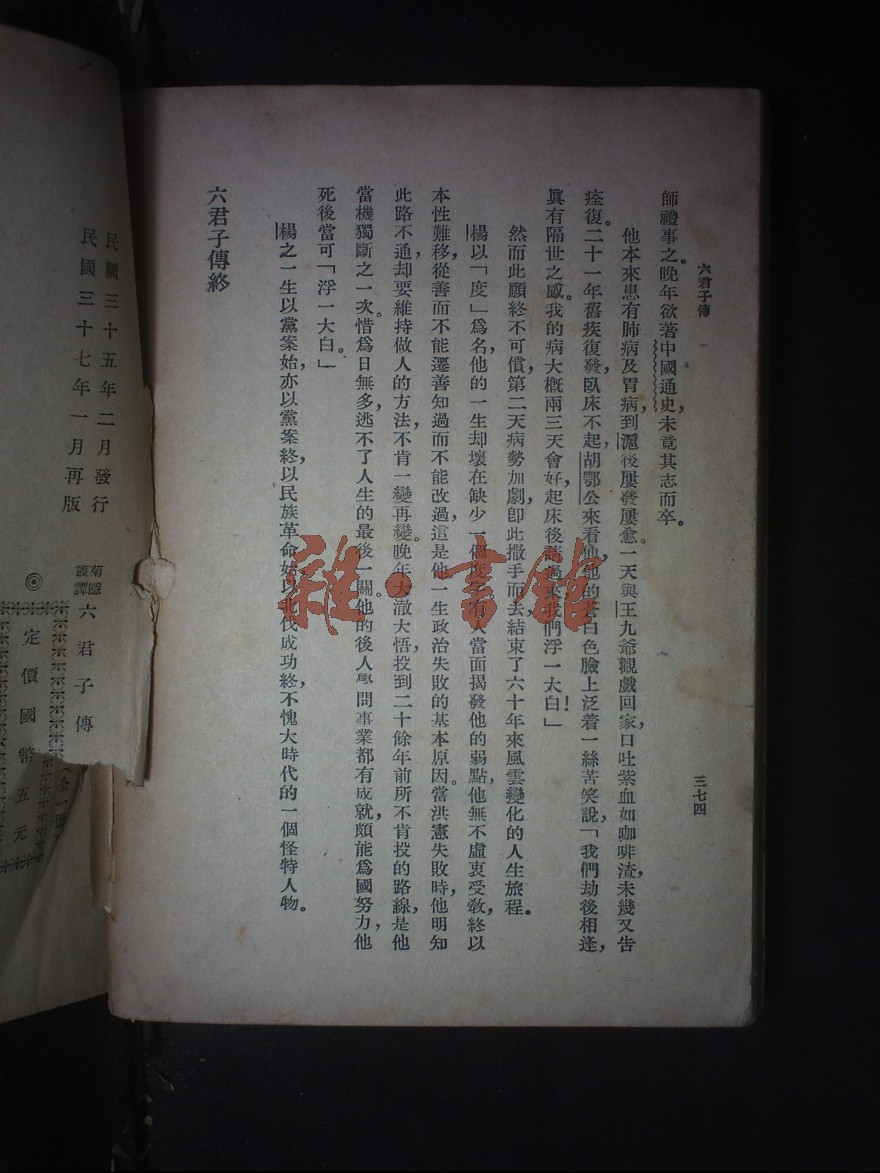 六君子傳
三七四
師禮事之。晚年欲著中國通史，未竟其志而卒。
他本來患有肺病及胃病，到滬後屢發屢愈。一天與王九爺觀戲回家，口吐紫血如咖啡渣，未幾又告
痊復。二十一年舊疾復發，臥床不起，胡鄂公來看他，他的蒼白色臉上泛着一絲苦笑說，「我們劫後相逢，
眞有隔世之感。我的病大概兩三天會好，起床後請過來我們浮一大白！」
然而此願終不可償，第二天病勢加劇，卽此撒手而去，結束了六十年來風雲變化的人生旅程。
楊以「度」爲名，他的一生却壞在缺少一個度字。有人當面揭發他的弱點，他無不虛衷受敎，終以
本性難移，從善而不能遷善，知過而不能改過，這是他一生政治失敗的基本原因。當洪憲失敗時，他明知
此路不通，却要維持做人的方法，不肯一變再變。晚年大澈大悟，投到二十餘年前所不肯投的路線，是他
當機獨斷之一次。惜爲日無多，逃不了人生的最後一關。他的後人學問事業都有成就，頗能爲國努力，他
死後當可「浮一大白。」
楊之一生以黨案始，亦以黨案終，以民族革命始，以北伐成功終，不愧大時代的一個怪特人物。
六君子傳終
民國三十五年二月發行
民國三十七年一月再版
菊隱叢譚
六君子傳
（全一冊）
◎
定價國幣五元
雜·書館